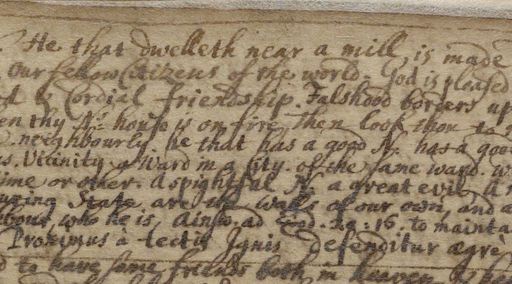 He that dwelleth near a mill, is made
our fellow Citizens of the world. God is pleased
& Cordial friendship. Falshood borders up
en thy Nr: house is on fire, then look thou to
neighbourly. he that has a good Nr has a good
us. Vicinity a ward in a City. of the same ward.
time or other. A spightful Nr a great evil. A
State are the walls of our own, and
who he is, Ainsw. ad 20: 16. to mainta
Proximus à tectis Ignis defenditur ægrè
to have some friends both in heaven &